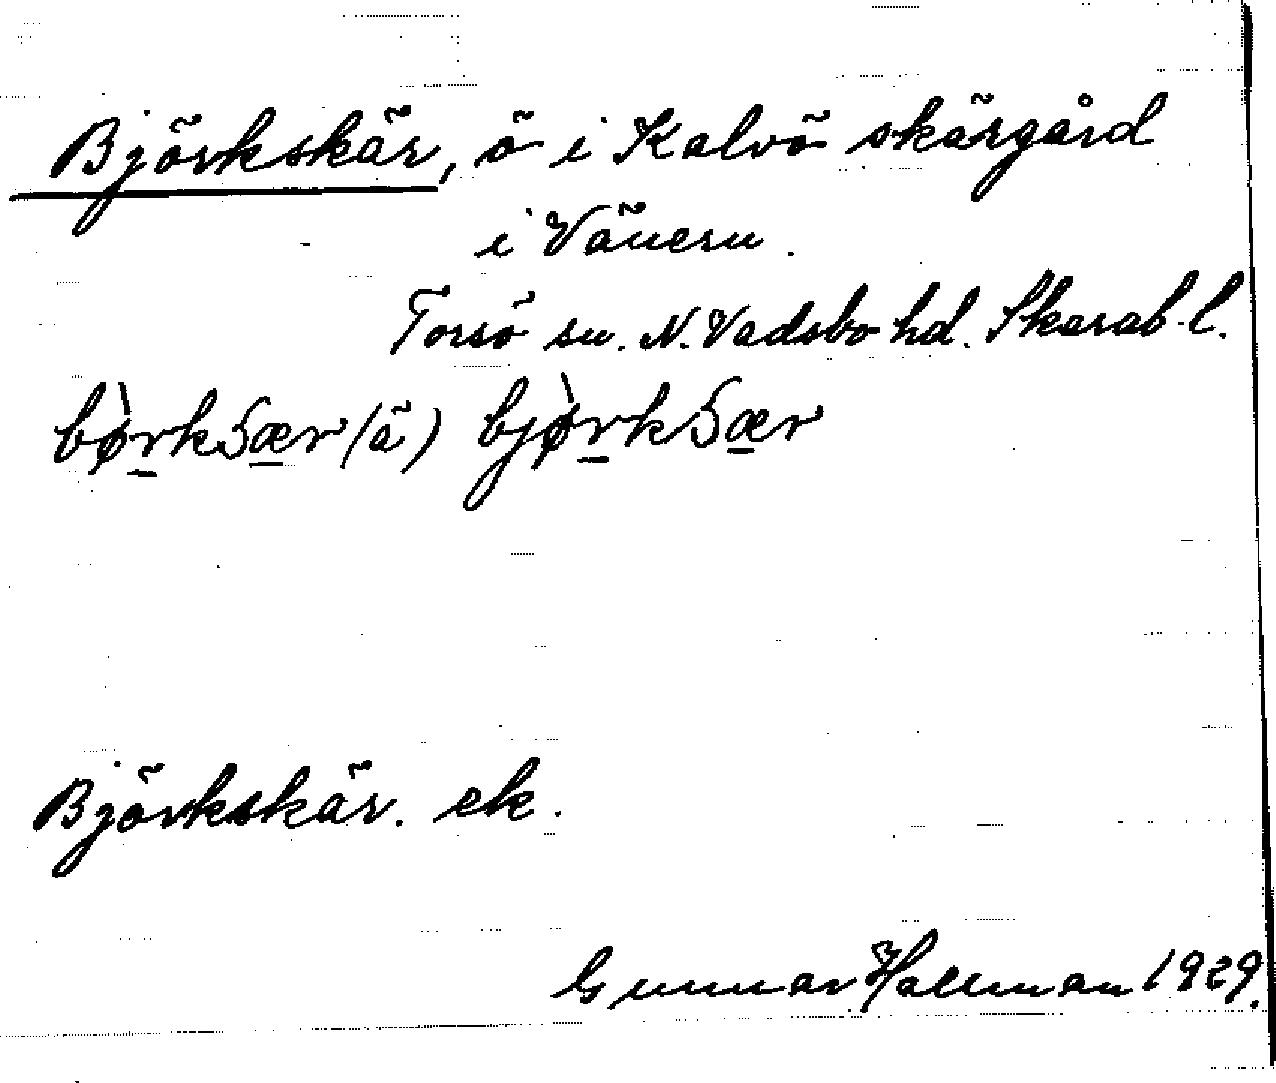 Björkskär, ö i Kalvö skärgård
i Vänern.
Torsö sn. N. Vadsbo hd. Skarab. l.
bø̀rkʂær (ä) bjø̀rkʂær
Björkskär. ek.
Gunnar Hallman 1929.